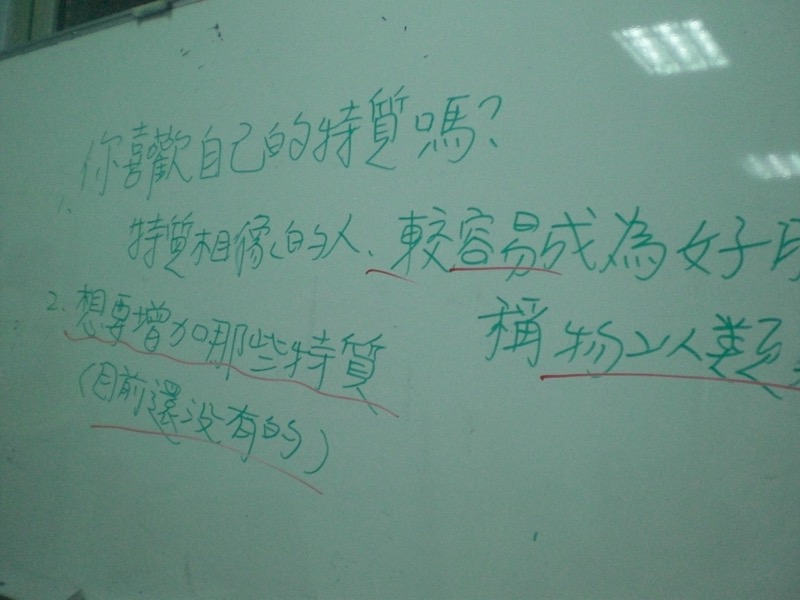 你喜歡自己的特質嗎?
1.
特質相像的人、較容易成為好
2. 想要增加那些特質
稱物以人類
(目前還沒有的)